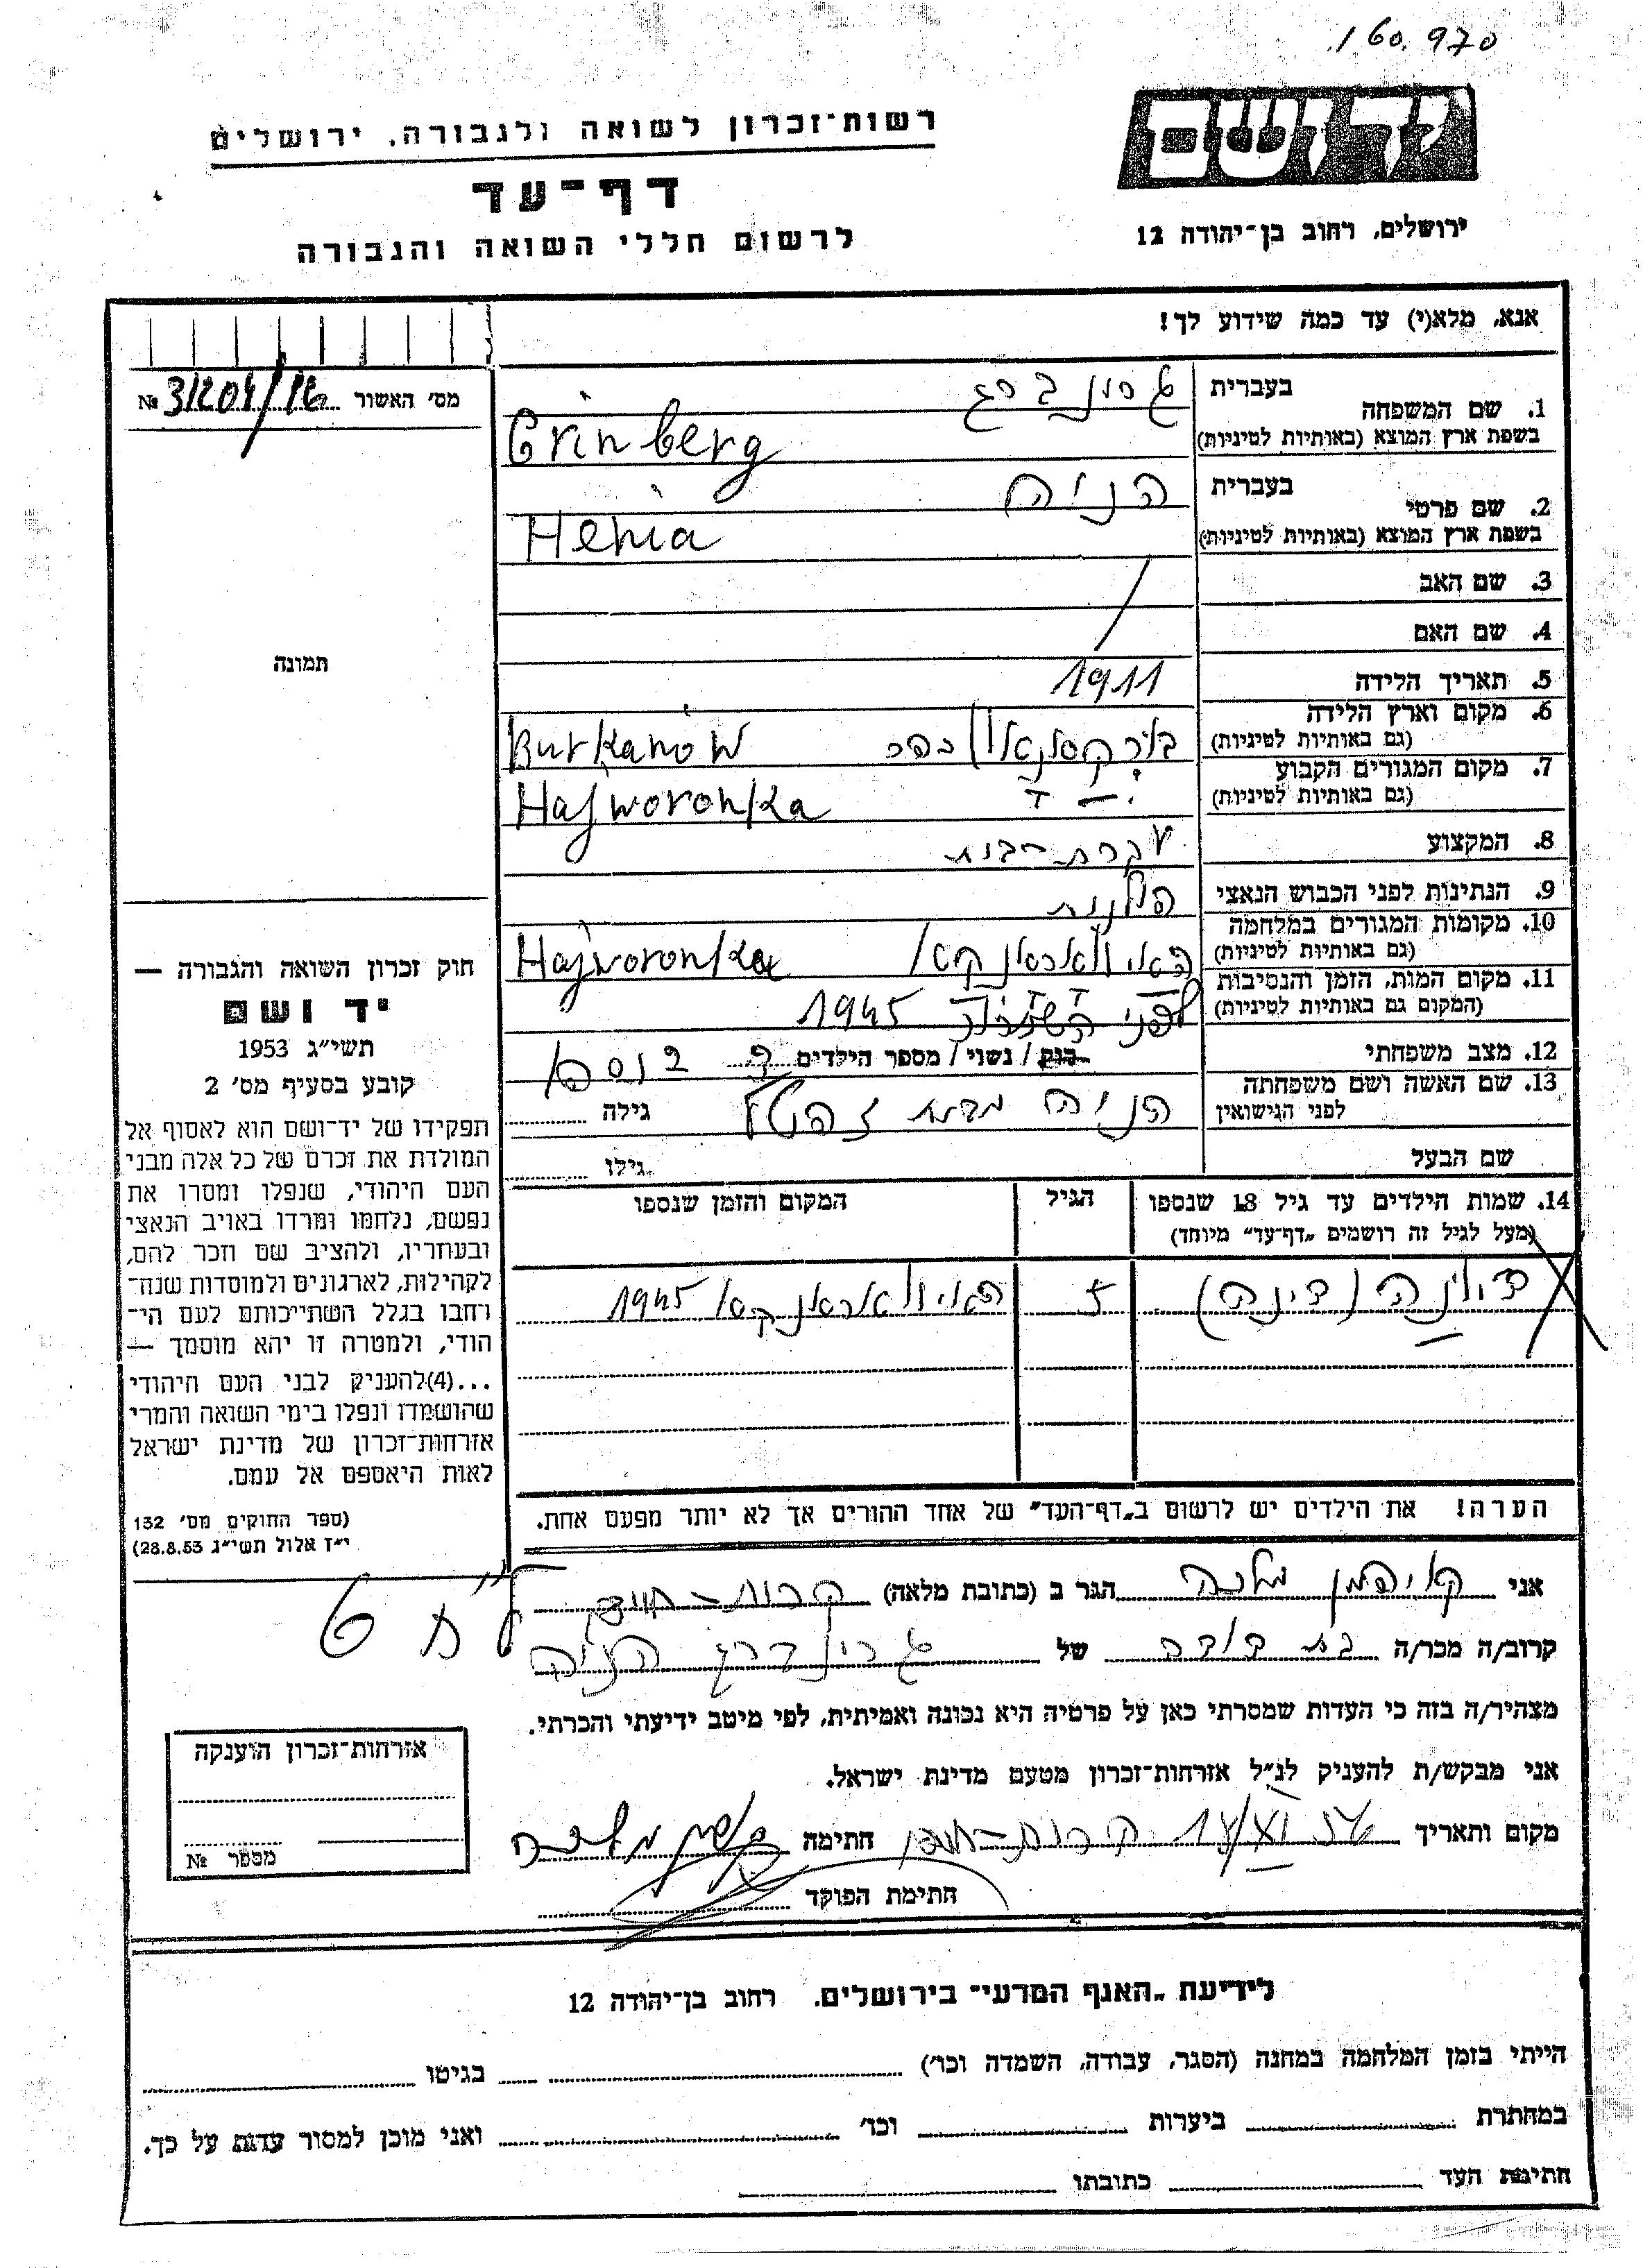 160.970
רשות־זכרון לשואה ולגבורה, ירושלים
יד ושם
דף־עד
לרשום חללי השואה והגבורה
ירושלים, רחוב בן־יהודה 12
אנא, מלא(י) עד כמה שידוע לך!
מס׳ האשור № 31204/16
1. שם המשפחה בעברית גרונברג
בשפת ארץ המוצא (באותיות לטיניות) Grinberg
2. שם פרטי בעברית הניה
בשפת ארץ המוצא (באותיות לטיניות) Henia
3. שם האב /
4. שם האם
תמונה
5. תאריך הלידה 1911
6. מקום וארץ הלידה
(גם באותיות לטיניות) Burkanów
7. מקום המגורים הקבוע
(גם באותיות לטיניות) Hajworonka
8. המקצוע עקרת־בית
9. הנתינות לפני הכבוש הנאצי פולנית
10. מקומות המגורים במלחמה
(גם באותיות לטיניות) Hajworonka
11. מקום המות, הזמן והנסיבות
(המקום גם באותיות לטיניות) לפני 1945
12. מצב משפחתי רוק / נשוי / מספר הילדים
13. שם האשה ושם משפחתה
לפני הנישואין הניה מבית גילה
שם הבעל גילו
14. שמות הילדים עד גיל 18 שנספו הגיל המקום והזמן שנספו
(מעל לגיל זה רושמים „דף־עד” מיוחד)
(דינה) 5 1945
הערה! את הילדים יש לרשום ב„דף־העד” של אחד ההורים אך לא יותר מפעם אחת.
חוק זכרון השואה והגבורה —
יד ושם
תשי״ג 1953
קובע בסעיף מס׳ 2
תפקידו של יד־ושם הוא לאסוף אל
המולדת את זכרם של כל אלה מבני
העם היהודי, שנפלו ומסרו את
נפשם, נלחמו ומרדו באויב הנאצי
ובעוזריו, ולהציב שם וזכר להם,
לקהילות, לארגונים ולמוסדות שנח־
רחבו בגלל השתייכותם לעם הי־
הודי, ולמטרה זו יהא מוסמך —
...(4) להעניק לבני העם היהודי
שהושמדו ונפלו בימי השואה והמרי
אזרחות־זכרון של מדינת ישראל
לאות היאספם אל עמם.
(ספר החוקים מס׳ 132
י״ז אלול תשי״ג 28.8.53)
אני קויפמן מלכה הגר ב (כתובת מלאה) קרית־חיים
קרוב/ה מכר/ה בת דודה של גרינברג הניה
מצהיר/ה בזה כי העדות שמסרתי כאן על פרטיה היא נכונה ואמיתית, לפי מיטב ידיעתי והכרתי.
אני מבקש/ת להעניק לנ״ל אזרחות־זכרון מטעם מדינת ישראל.
מקום ותאריך קרית־חיים חתימה
חתימת הפוקד
אזרחות־זכרון הוענקה
מספר №
לידיעת „האגף המדעי־ בירושלים. רחוב בן־יהודה 12
הייתי בזמן המלחמה במחנה (הסגר, עבודה, השמדה וכו׳) בגיטו
במחתרת ביערות וכו׳ ואני מוכן למסור עדות על כך.
חתימת העד כתובתו